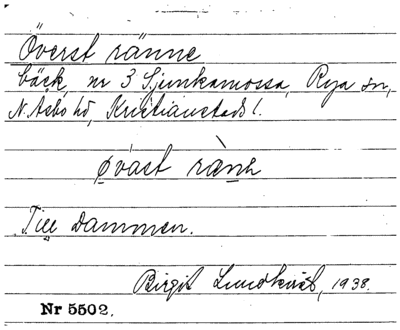 Överst ränne
bäck, nr 3 Sjunkamossa, Rya sn,
N. Åsbo hd, Kristianstads l.
ǿvast ràn̲ɘ
Till Dammen.
Birgit Lundkvist, 1938.
Nr 5502.